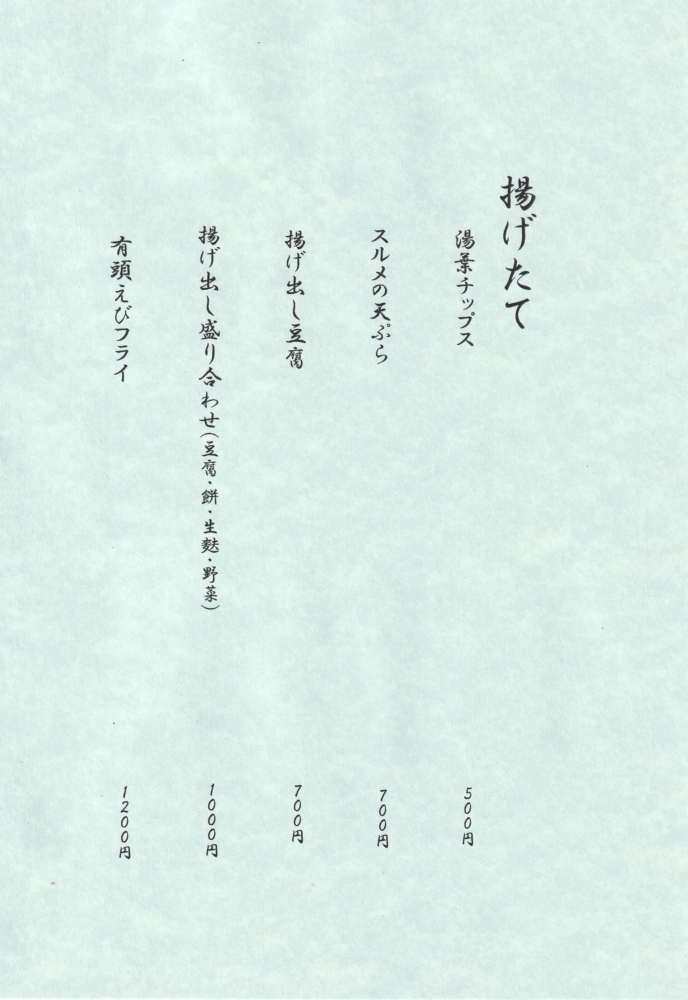 揚げたて
湯葉チップス 500円
スルメの天ぷら 700円
揚げ出し豆腐 700円
揚げ出し盛り合わせ(豆腐・餅・生麩・野菜) 1000円
有頭えびフライ 1200円